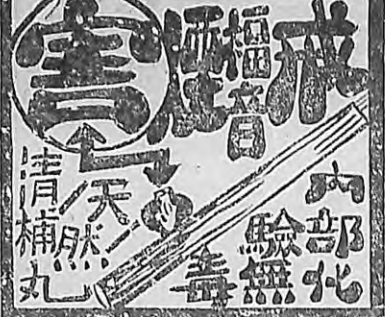 戒
福音
煙
害
內部化
驗無
毒
天然
清補丸